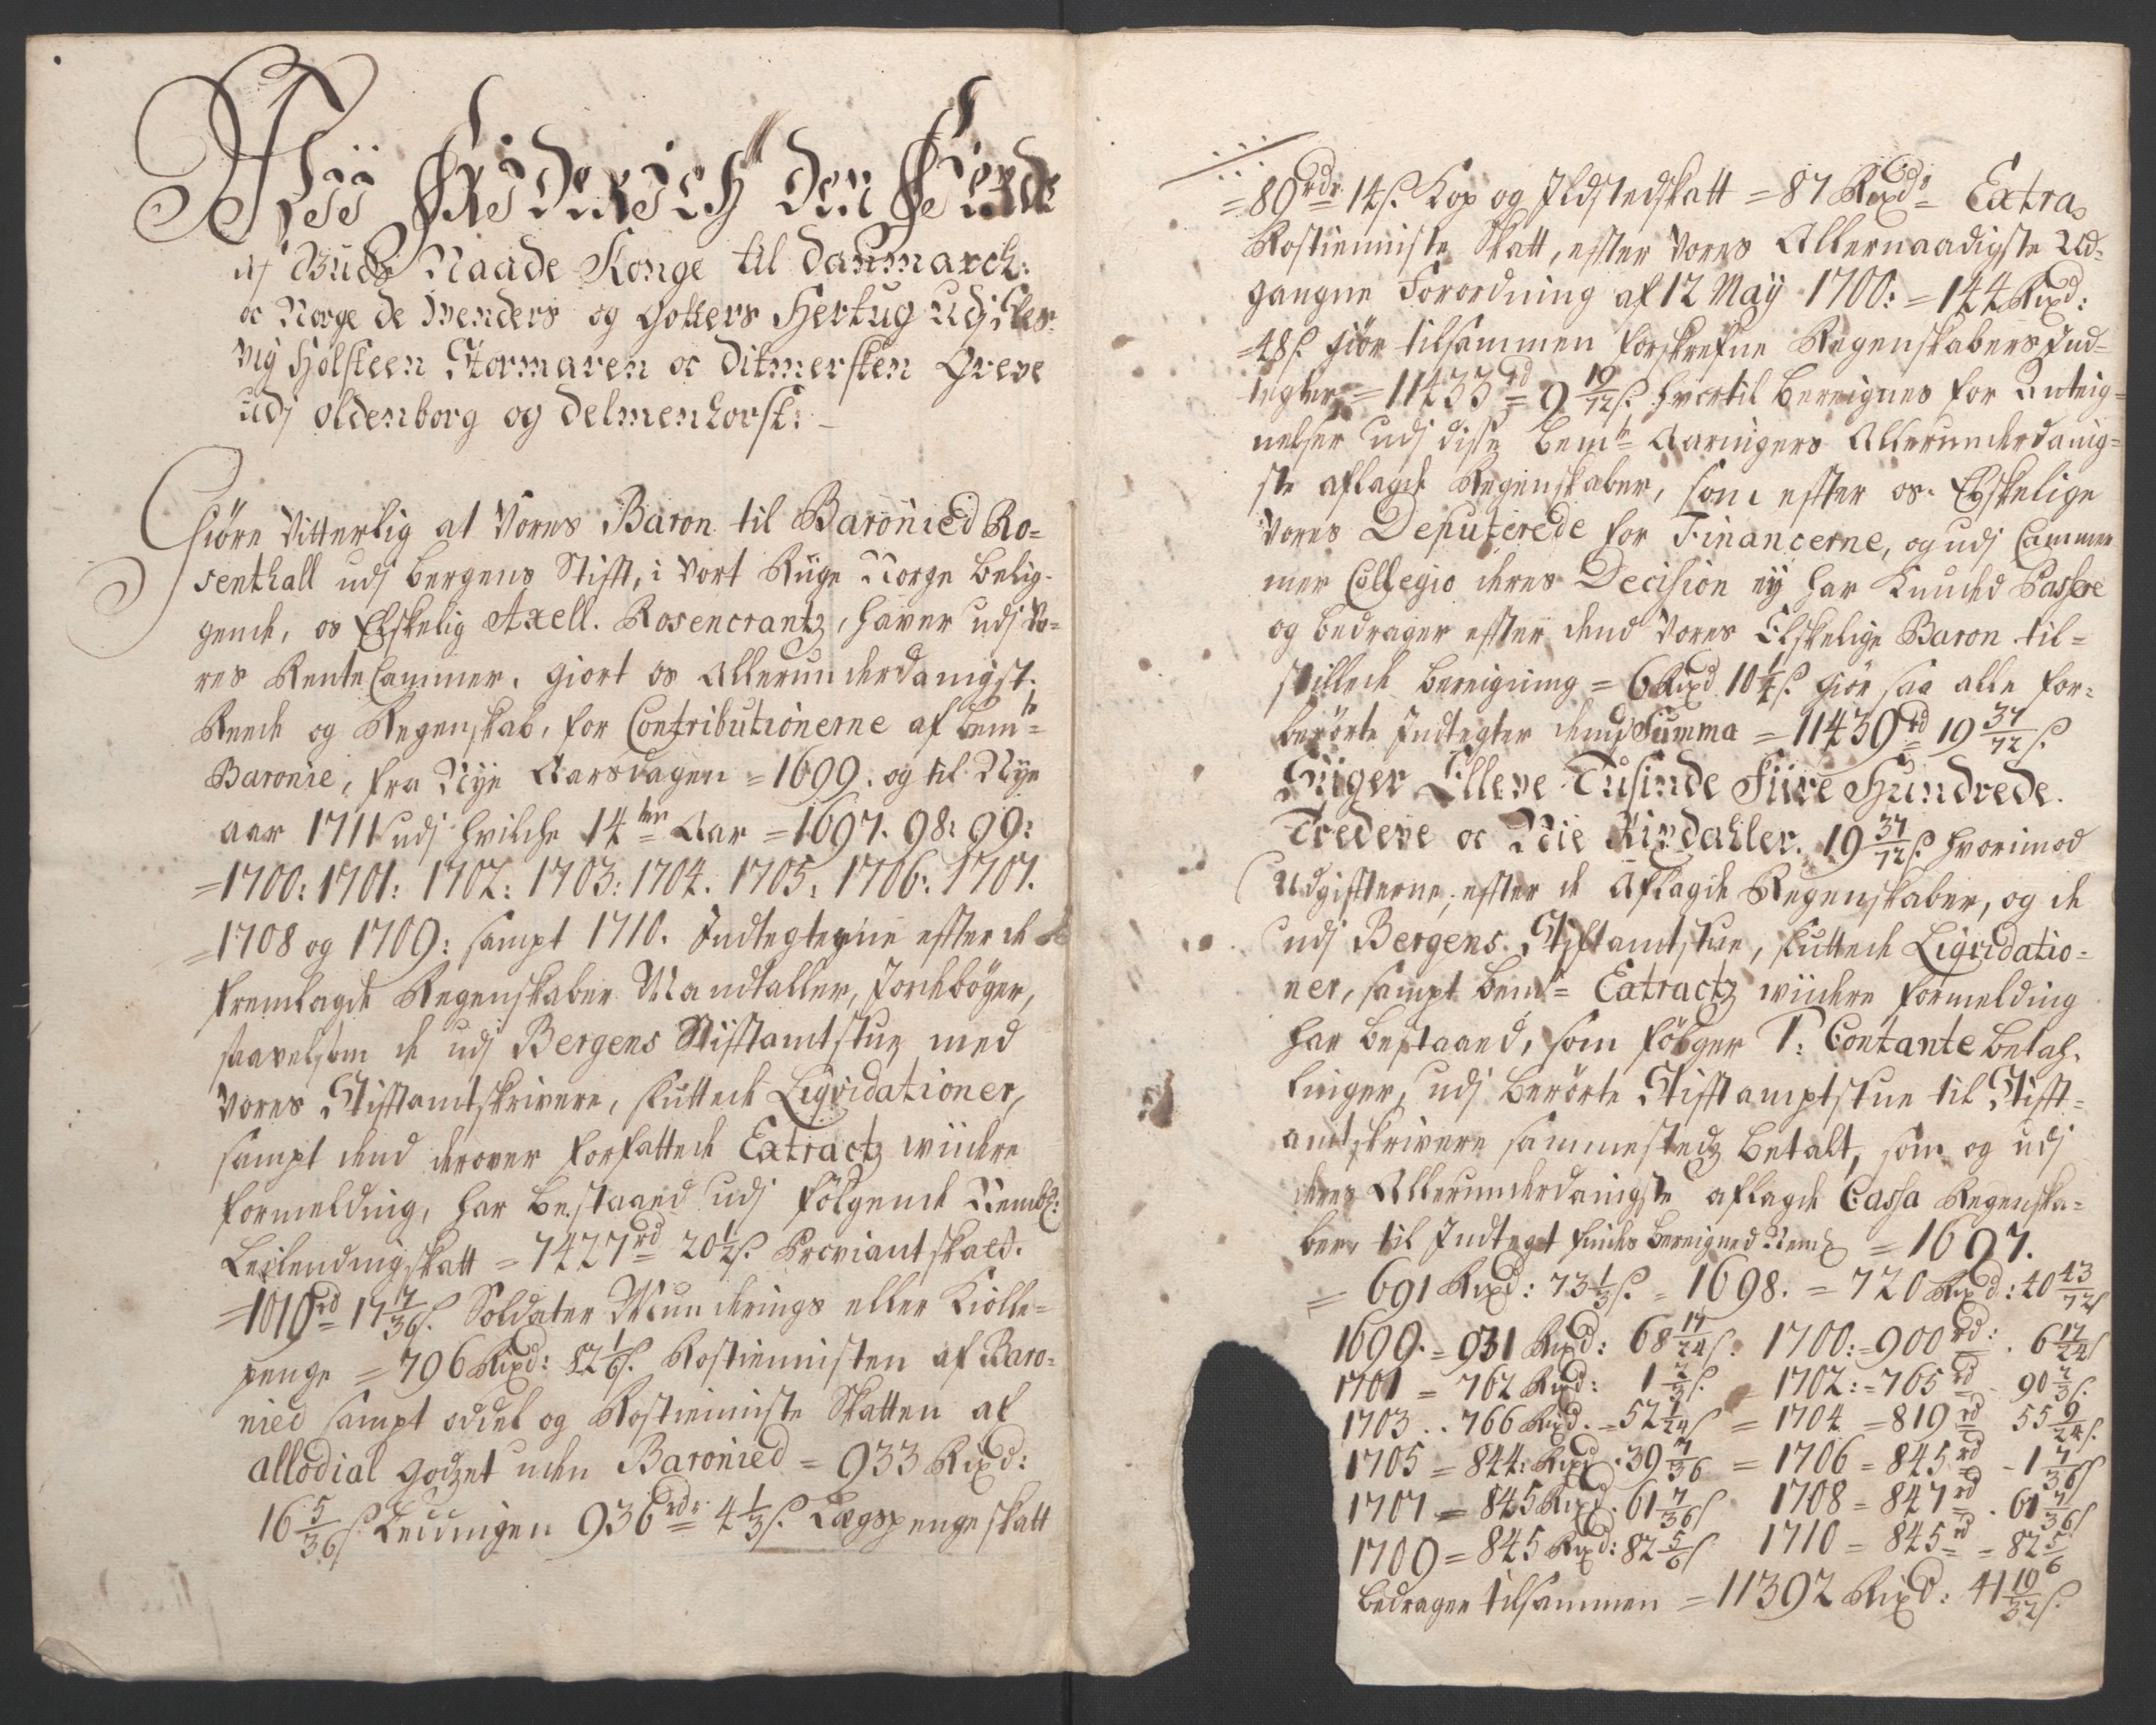 Wii Friderich den Fierde
af Guds Naade Konge til Danmarck:
oc Norge de Wenders og Gotters Hertug udj Sles-
vig Holsteen Stormaren oc Ditmersken Greve
udj Oldenborg og Delmenhorst: -
Giöre Vitterlig at Vores Baron til Baronied Ro-
senthall udj Bergens Stift, i Vort Riige Norge belig-
gende, os Elskelig Axell. Rosencrantz, haver udj Vo-
res Rente Cammer, giort os Allerunderdanigst.
Reede og Regenskab, for Contributionerne af bemte
Baronie, fra Nye Aarsdagen = 1699. og til Nye
aar 1711 udj hvilche 14ten Aar = 1697. 98: 99:
= 1700: 1701: 1702: 1703: 1704. 1705: 1706: 1707.
= 1708 og 1709: sampt 1710. Indtegterne effter de
fremlagde Regenskaber Mandtaller, Jordebøger,
saavelsom de udj Bergens Stifftamtstue med
Vores Stifftamtskrivere, sluttede Liqvidationer,
sampt dend derover forfattede Extractz wiidere
formelding, har bestaaed udj følgende Neml:
Leilendingskatt = 7427rd 20½s. Proviantskatt.
= 1010rd 17 7/36s. Soldater Munderings eller Kiolle-
penge = 796 Rixd: 82 1/6s. Rostienisten af Baro-
nied sampt oddel og Rostieniste Skatten af
allodial godzet uden Baronied = 933 Rixd:
16 5/36s. Leedingen 936rdr 4⅓s. Lægspenge skatt
= 89rdr 14s. Kop og Ildstedskatt = 87 Rixdr Extra
Rostieniste Skatt, effter Vores Allernaadigste Ud-
gangne Forordning af 12 Maij 1700: = 144 Rixd:
= 48s. giör tilsammen forskrefne Regenskabers Ind-
tegter = 11433rd = 9 19/72s. hvortil bereignes for Anteig-
nelser udj diste bemte Aaringers Allerunderdanig-
ste aflagde Regenskaber, som effter os Elskelige
Vores Deputerede for Financerne, og udj Cammer
mer Collegio deres Decision ey har Kunded Passere
og bedrager effter dend Vores Elskelige Baron til-
stillede bereigning = 6 Rixd 10¼s. giör saa alle for-
berörte Indtegter dend Summa = 11439rd 19 37/72s.
Siiger Elleve Tusinde Fiire Hundrede.
Tredeve oc Nie Rixdahler. 19 37/72s. hvorimod
Udgiffterne, effter de Aflagde Regenskaber, og de
udj Bergens Stiftamtstue, sluttede Liqvidatio-
ner, sampt bemte Extractz wiidere formelding
har bestaaed, som fölger 1: Contante betah-
linger, udj berörte Stifftamptstue til Stifft-
amtskrivere sammestedz betalt, som og udj
deres Allerunderdanigste aflagde Cassa Regenska-
ber, til Indtegt findes bereigned Neml = 1697.
= 691 Rixd: 73⅓s. = 1698. = 720 Rixd: 40 43/72s
1699. = 931 Rixd: 68 17/24s: 1700: = 900rd: . 6 17/24s
1701 = 762 Rixd: 1⅔s. = 1702: = 765rd - 90⅔s.
1703 .. 766 Rixd. = 52 1/24s = 1704 = 819rd 55 9/24s.
1705 = 844: Rixd. 39 7/36 = 1706 = 845rd - 1 7/36s
1707 = 845 Rixd. 61 7/36s 1708 = 847rd . 61 7/36s
1709 = 845 Rixd: 82 5/6s 1710 = 845rd = 82 5/6
bedrager tilsammen = 11392 Rixd: 41 19/32s.